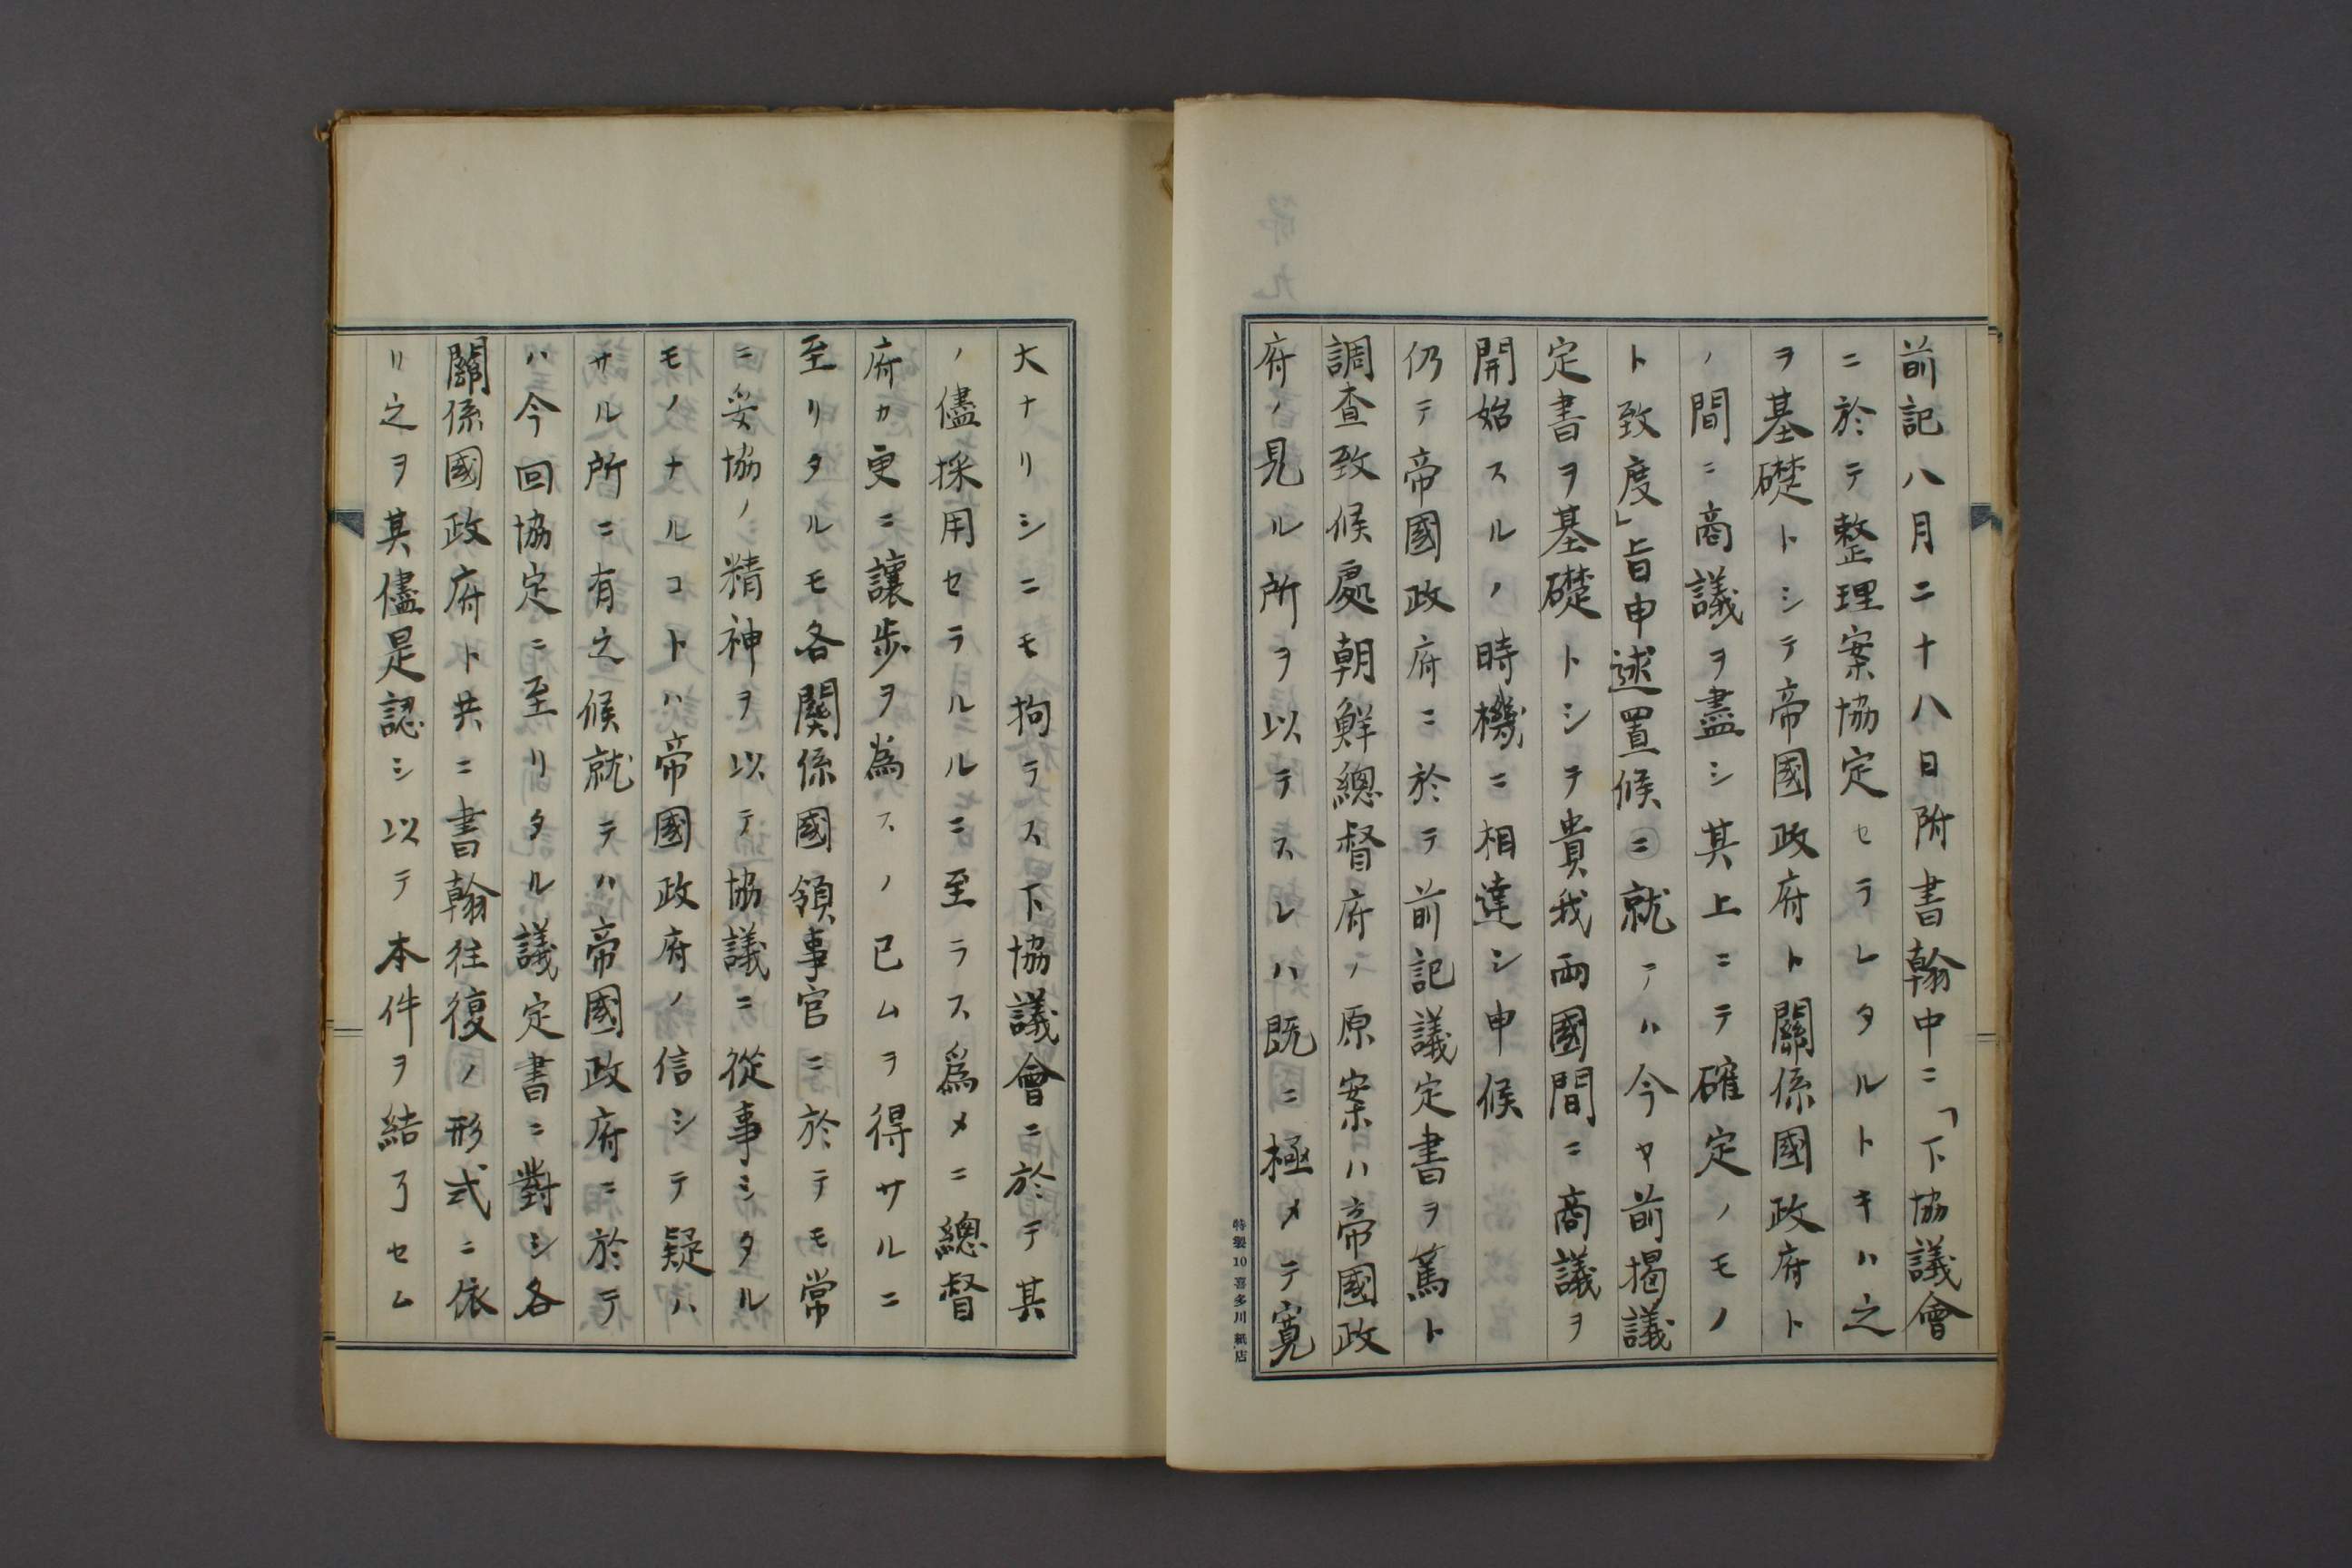 前記八月二十八日附書翰中ニ「下協議會
ニ於テ整理案協定セラレタルトキハ之
ヲ基礎トシテ帝國政府ト關係國政府ト
ノ間ニ商議ヲ盡シ其上ニテ確定ノモノ
ト致度」旨申述置候ニ就テハ今ヤ前揭議
定書ヲ基礎トシテ貴我兩國間ニ商議ヲ
開始スルノ時機ニ相達シ申候
仍テ帝國政府ニ於テ前記議定書ヲ篤ト
調査致候處朝鮮總督府ノ原案ハ帝國政
府ノ見ル所ヲ以テスレハ既ニ極メテ寬
特製10喜多川紙店
大ナリシニモ拘ラス下協議會ニ於テ其
ノ儘採用セラルルニ至ラス爲メニ總督
府カ更ニ讓步ヲ爲スノ已ムヲ得サルニ
至リタルモ各關係國領事官ニ於テモ常
ニ妥協ノ精神ヲ以テ協議ニ從事シタル
モノナルコトハ帝國政府ノ信シテ疑ハ
サル所ニ有之候就テハ帝國政府ニ於テ
ハ今回協定ニ至リタル議定書ニ對シ各
關係國政府ト共ニ書翰往復ノ形式ニ依
リ之ヲ其儘是認シ以テ本件ヲ結了セム